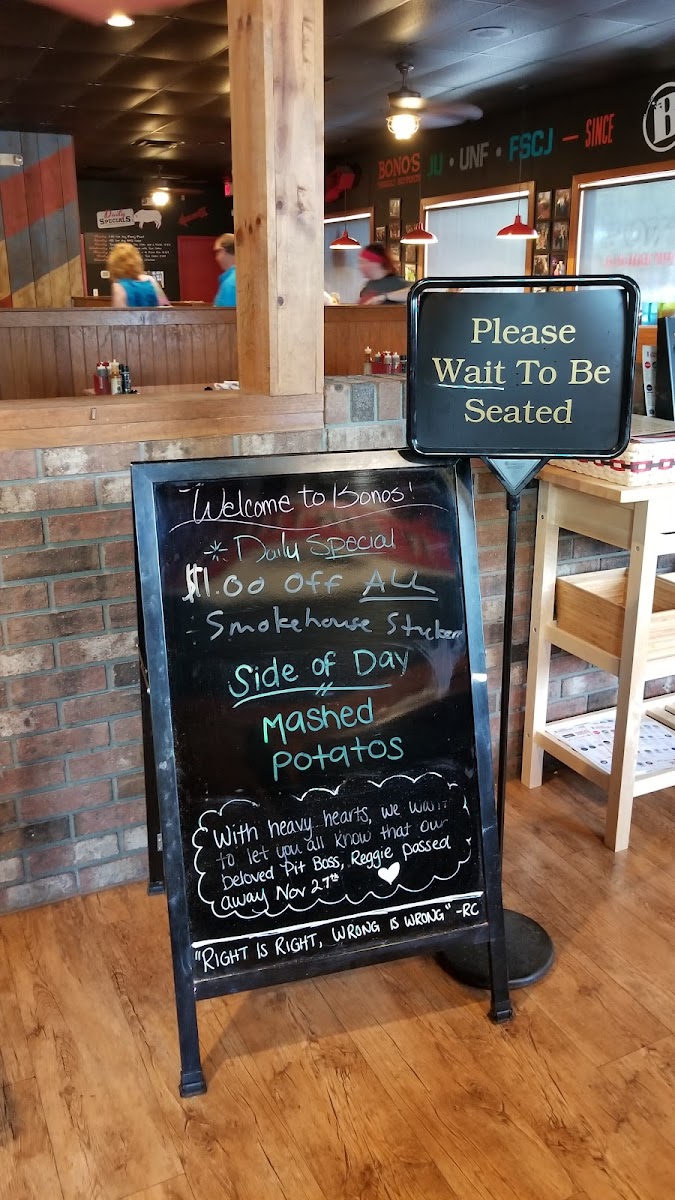 BONO'S JU • UNF • FSCJ — SINCE
B
Daily
SPECIALS
Please
Wait To Be
Seated
Welcome to Bonos!
Daily Special
$1.00 Off ALL
Smokehouse
Side of Day
Mashed
Potatos
With heavy hearts, we want
to let you all know that our
beloved Pit Boss, Reggie passed
away Nov 27th
"RIGHT IS RIGHT, WRONG IS WRONG" -RC